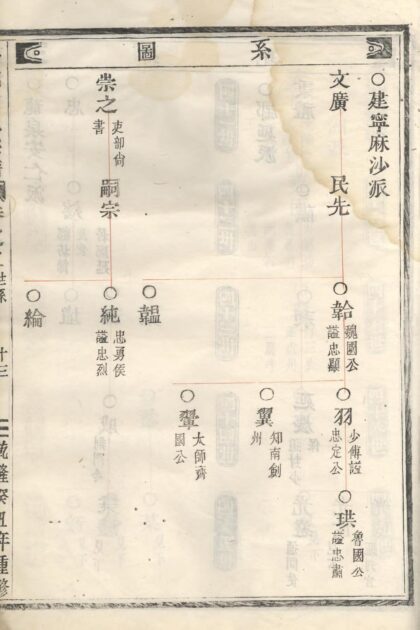 系圖
○建寧麻沙派
文廣
民先
○韐
魏國公
諡忠顯
○羽
少傅諡
忠定公
○珙
魯國公
諡忠肅
○翼
知南劍
州
○翬
太師齊
國公
○韞
崇之
吏部尚
書
嗣宗
○純
忠勇侯
諡忠烈
○綸
世系
十三
隆癸丑年重修